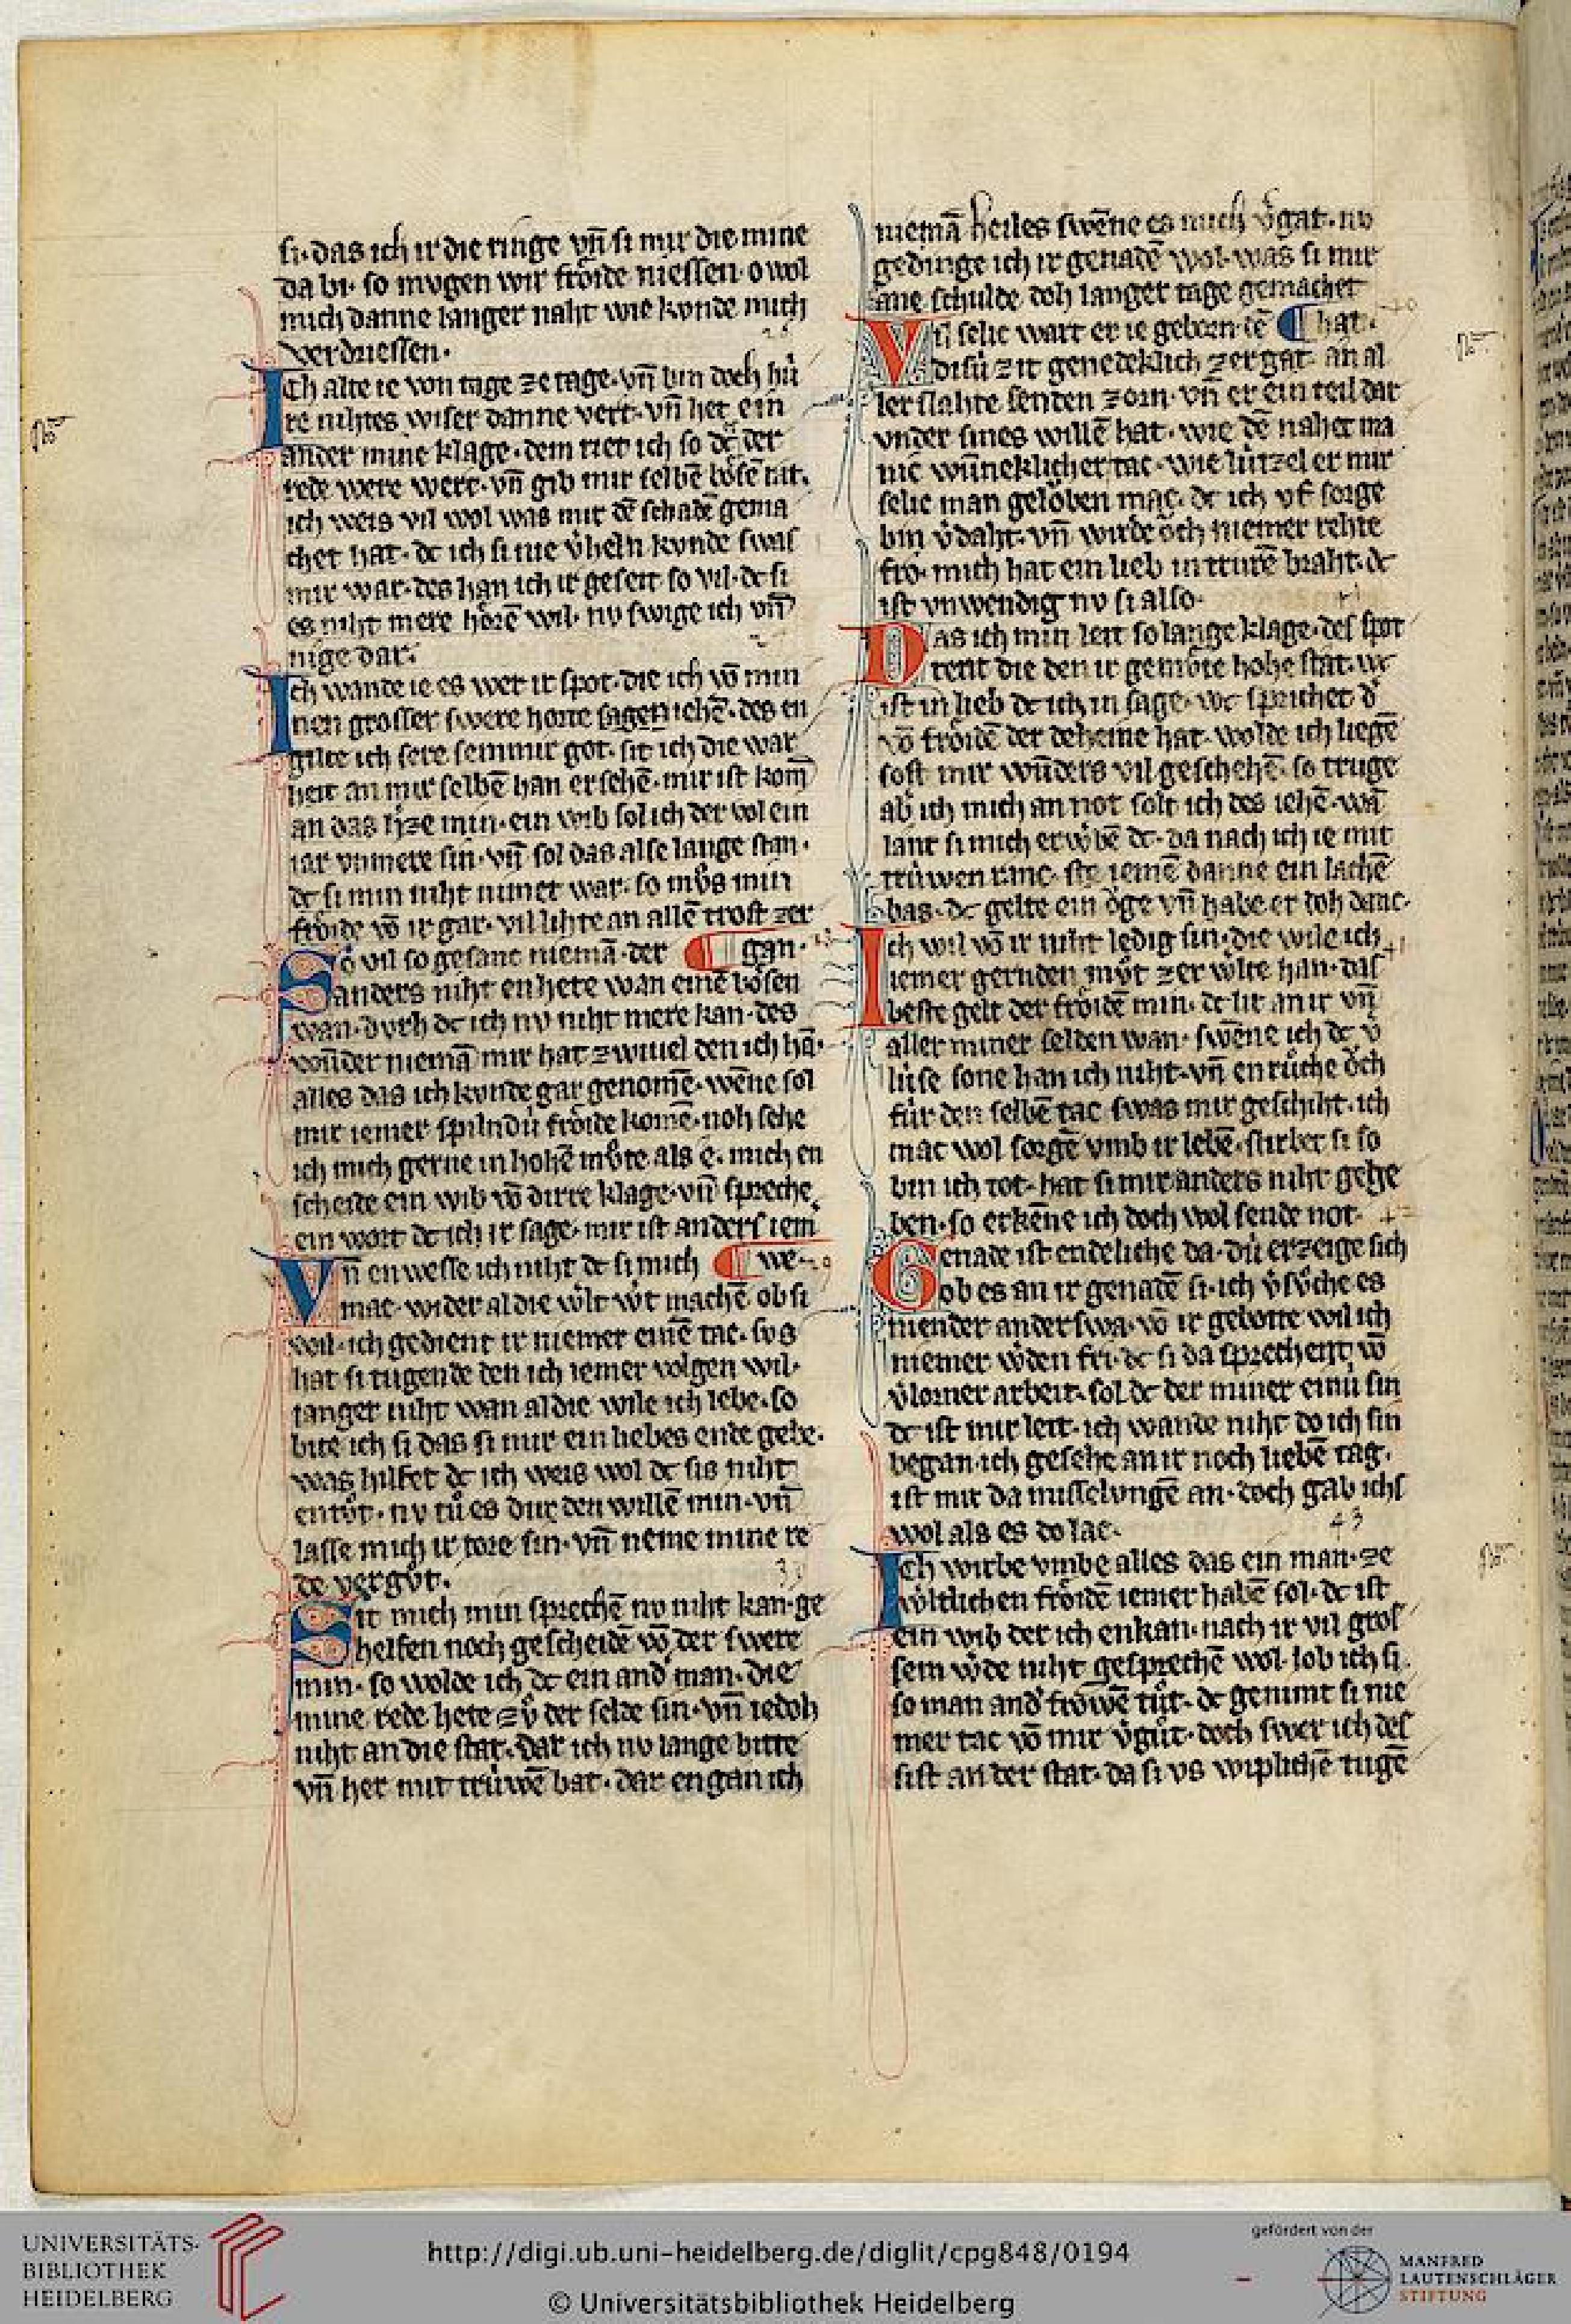 si· das ich ir die ringe vn̄ si mir die mine
da bi· so mvgen wir froͤide niessen· o wol
mich danne langer naht wie konde mich
verdriessen·
Ich alte ie von tage ze tage· vn̄ bin doch hù
re nihtes wiser danne vert· vn̄ het ein
ander mine klage· dem riet ich so dc der
rede were wert· vn̄ gib mir selbē boͤsē rat·
ich weis vil wol was mir dē schadē gema
chet hat· dc ich si nie v̉heln konde swas
mir war· des han ich ir geseit so vil· dc si
es niht mere hoͤrē wil· nv swige ich vn̄
nige dar·
Ich wande ie es wer ir spot· die ich vō min
nen grosser swere horte sagen iehē· des en
gilte ich sere semmir got· sit ich die war
heit an mir selbē han ersehē· mir ist kom̄
an das h̓ze min· ein wib sol ich der vol ein
iar vnmere sin· vn̄ sol das alse lange stan·
dc si min niht nimet war· so mvͦs min
froͤide vō ir gar· vil lihte an allē trost zer
So vil so gesanc niemā· der ¶ gan·
anders niht enhete wan einē boͤsen
wan· dvrh dc ich nv niht mere kan· des
wn̄der niemā mir hat zwiuel den ich hā·
alles das ich konde gar genomē· wēne sol
mir iemer spilndù froͤide komē· noh sehe
ich mich gerne in hohē mvͦte als e· mich en
scheide ein wib vō dirre klage· vn̄ spreche
ein wort dc ich ir sage· mir ist anders iem̉
Vn̄ enwesse ich niht dc si mich ¶ we·
mac· wider al die w̉lt w̉t machē ob si
wil· ich gedient ir niemer einē tac· svs
hat si tugende den ich iemer volgen wil·
langer niht wan al die wile ich lebe· so
bite ich si das si mir ein liebes ende gebe·
was hilfet dc ich weis wol dc sis niht
entvͦt· nv tuͦ es dur den willē min· vn̄
lasse mich ir tore sin· vn̄ neme mine re
de vergvͦt·
Sit mich min sprechē nv niht kan· ge
helfen noch gescheidē vō der swere
min· so wolde ich dc ein and̓ man· die
mine rede hete zvͦ der selde sin· vn̄ iedoh
niht an die stat· dar ich nv lange bitte
vn̄ her mit trùwē bat· dar engan ich
niemā heiles swēne es mich v̓gat· nv
gedinge ich ir genadē wol· was si mir
ane schulde doh langer tage gemachet
Vn̄ selic wart er ie geborn· dē ¶ hat·
disù zit genedeklich zergat· an al
ler slahte senden zorn· vn̄ er ein teil dar
vnder sines willē hat· wie dē nahet ma
nic wn̄neklicher tac· wie lùtzel er mir
selic man geloͮben mac· dc ich vf sorge
bin v̓daht· vn̄ wirde oͮch niemer rehte
fro· mich hat ein lieb in trurē braht· dc
ist vnwendig nv si also·
Das ich min leit so lange klage· des spot
tent die den ir gemvͤte hohe stat· wc
ist in lieb dc ich in sage· wc sprichet d̓
vō froͤidē der deheine hat· wolde ich liegē
sost mir wn̄ders vil geschehē· so truge
ab̓ ich mich an not solt ich des iehē· wā
lant si mich erw̓bē dc· da nach ich ie mit
trùwen ranc· iemē danne ein lachē
bas· dc gelte ein oͮge vn̄ habe er doh danc·
Ich wil vō ir niht ledig sin· die wile ich
iemer gernden mvͦt zer w̓lte han· das
beste gelt der froͤidē min· dc lit an ir vn̄
aller miner selden wan· swēne ich dc v̓
lùse sone han ich niht· vn̄ enruͦche oͮch
fùr den selbē tac swas mir geschiht· ich
mac wol sorgē vmb ir lebē· stirbet si so
bin ich tot· hat si mir anders niht gege
ben· so erkēne ich doch wol sende not·
Genade ist endeliche da· dù erzeige sich
ob es an ir genadē si· ich v̓suͦche es
niender anderswa· vō ir gebotte wil ich
niemer w̓den fri· dc si da sprechent vō
v̓lorner arbeit· sol dc der miner einù sin
dc ist mir leit· ich wande niht do ich sin
began· ich gesehe an ir noch liebē tag·
ist mir da misselvngē an· doch gab ichs
wol als es do lac·
Ich wirbe vmbe alles das ein man· ze
w̓ltlichen froͤidē iemer habē sol· dc ist
ein wib der ich enkan· nach ir vil gros
sem w̓de niht gesprechē wol· lob ich si
so man and̓ froͮwē tuͦt· dc genimt si nie
mer tac vō mir v̓guͦt· doch swer ich des
sist an der stat· da si vs wiplichē tuge
39
40
41
42
43
UNIVERSITÄTS-
BIBLIOTHEK
HEIDELBERG
http://digi.ub.uni-heidelberg.de/diglit/cpg848/0194
© Universitätsbibliothek Heidelberg
gefördert von der
MANFRED
LAUTENSCHLÄGER
STIFTUNG